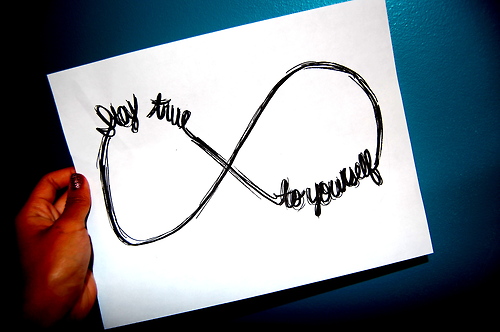 Stay true
to yourself